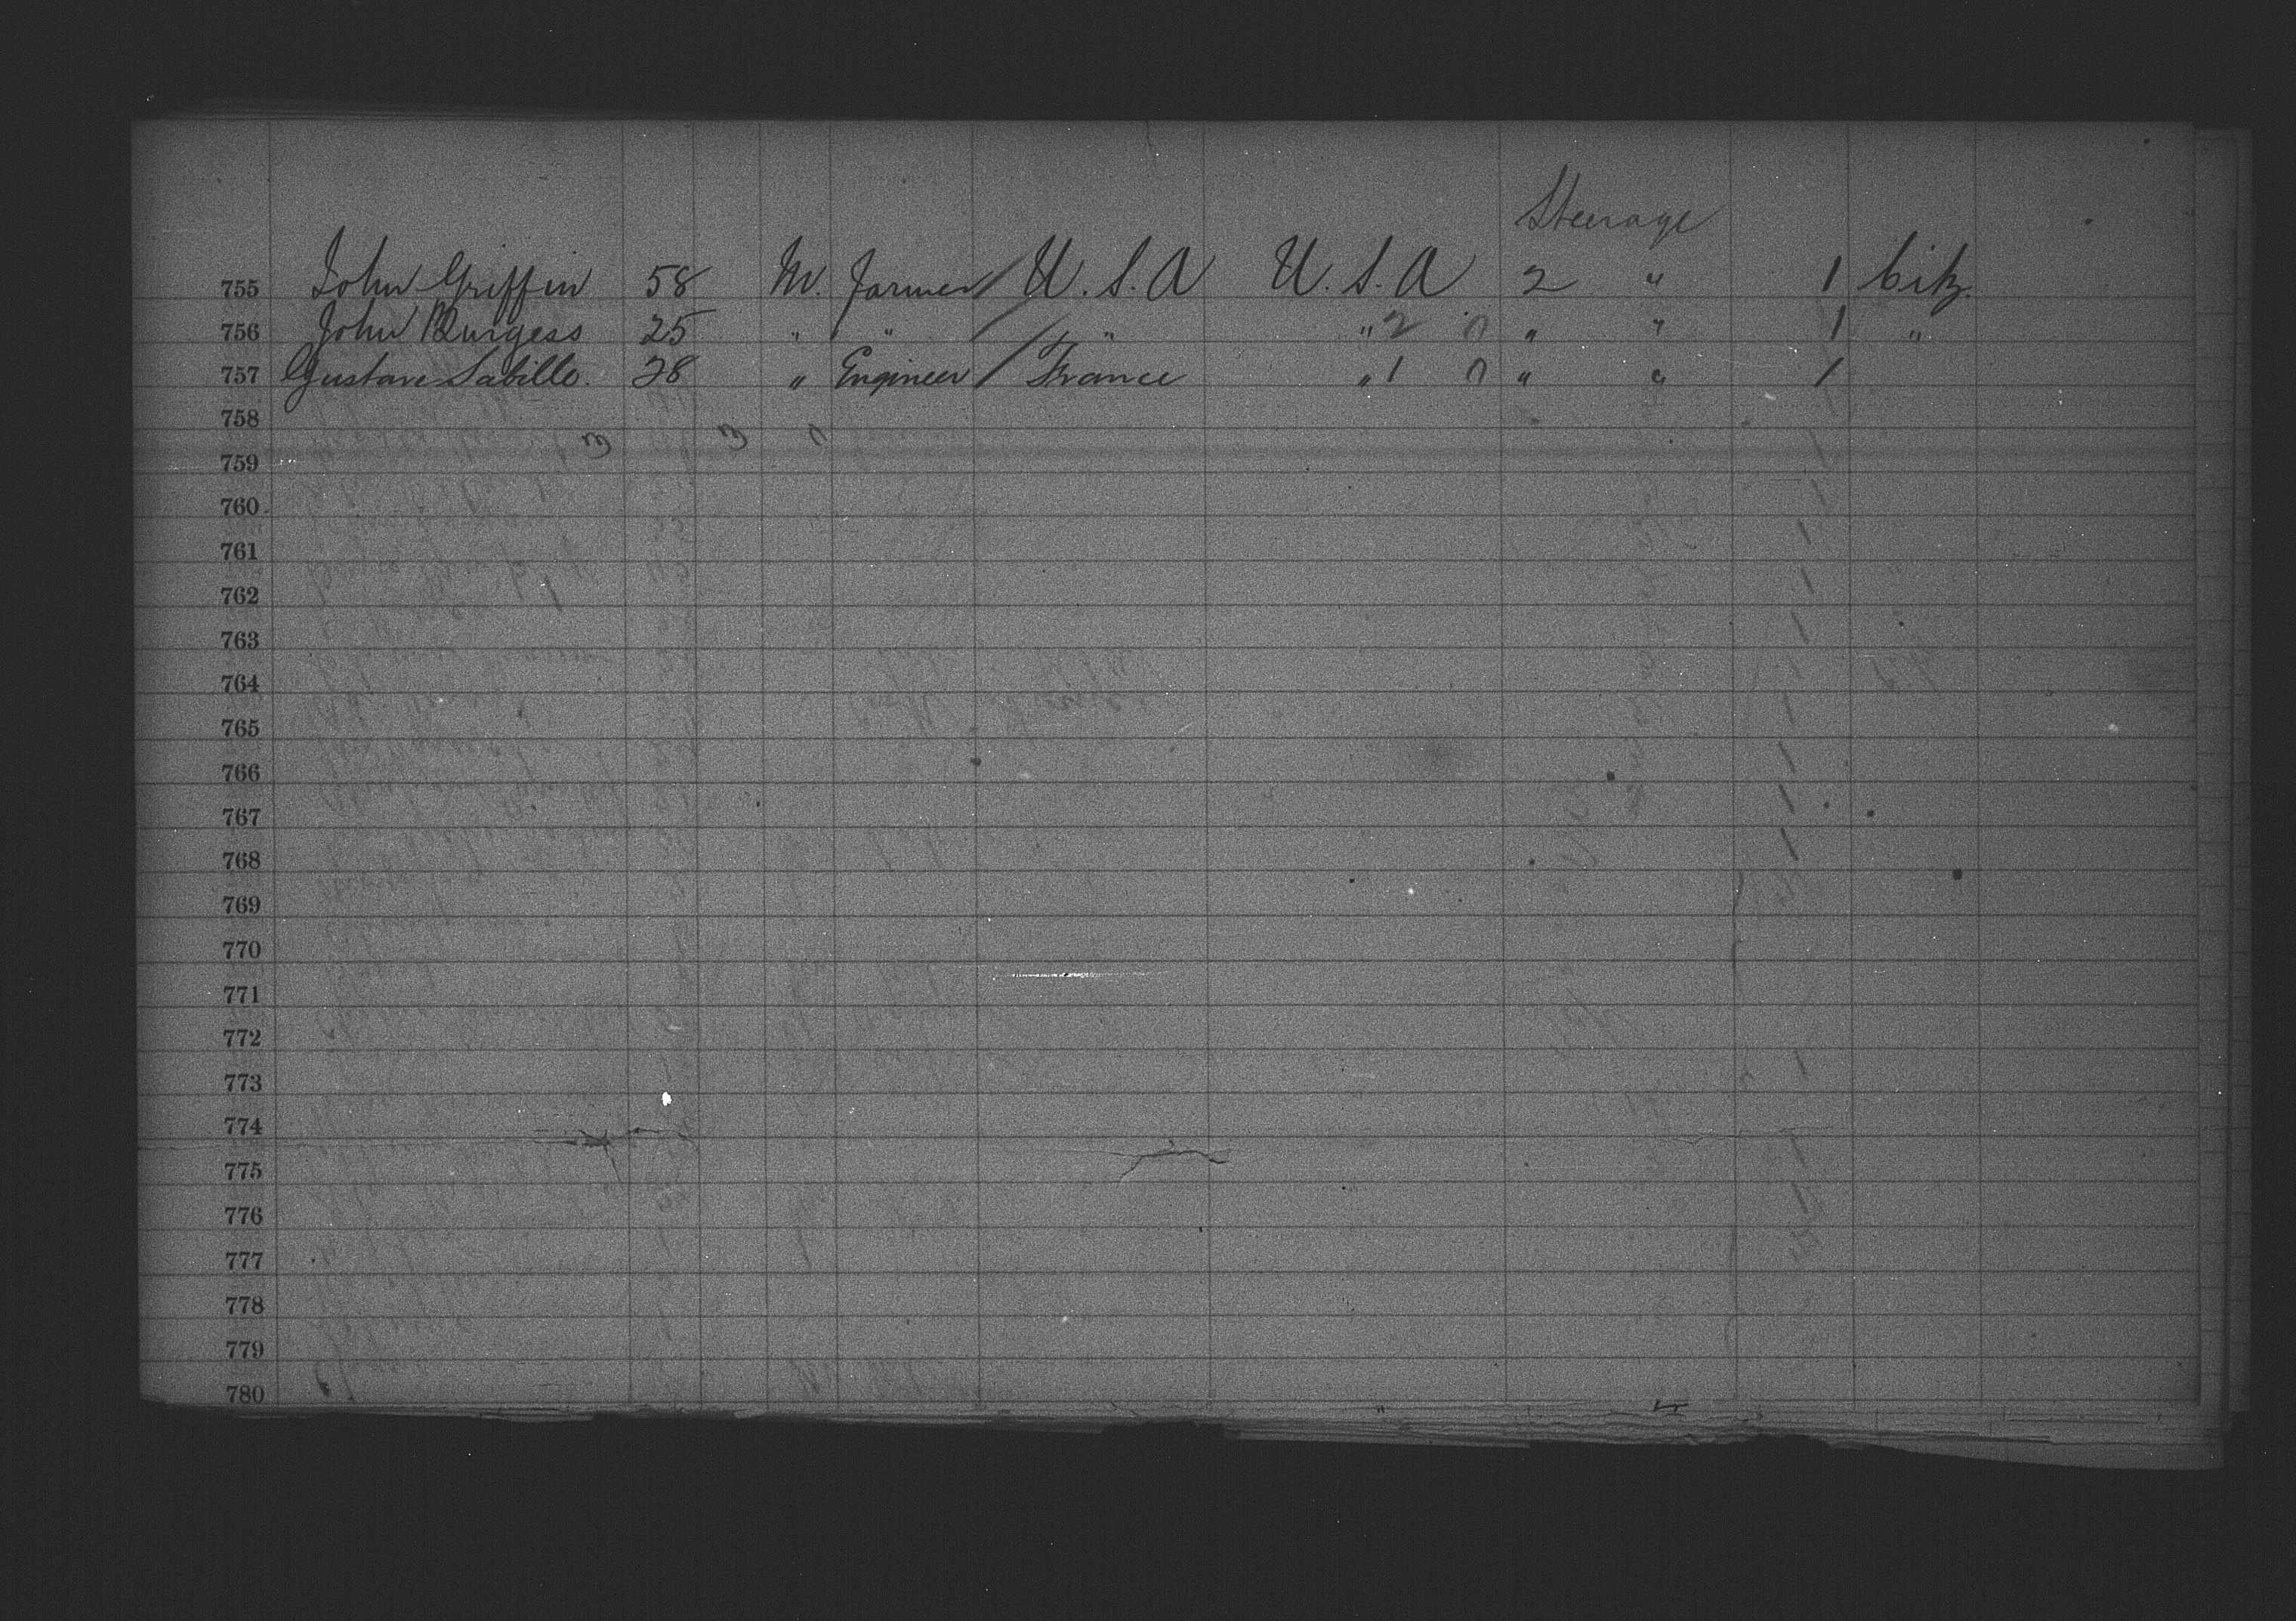 Steerage
755 John Griffin 58 M. Farmer / U.S.A U.S.A 2 " 1 Citz.
756 John Burgess 25 " " / " " 2 0 " " 1 "
757 Gustave Sabille. 28 " Engineer / France " 1 0 " " 1
758
3 3 0
759
760
761
762
763
764
765
766
767
768
769
770
771
772
773
774
775
776
777
778
779
780